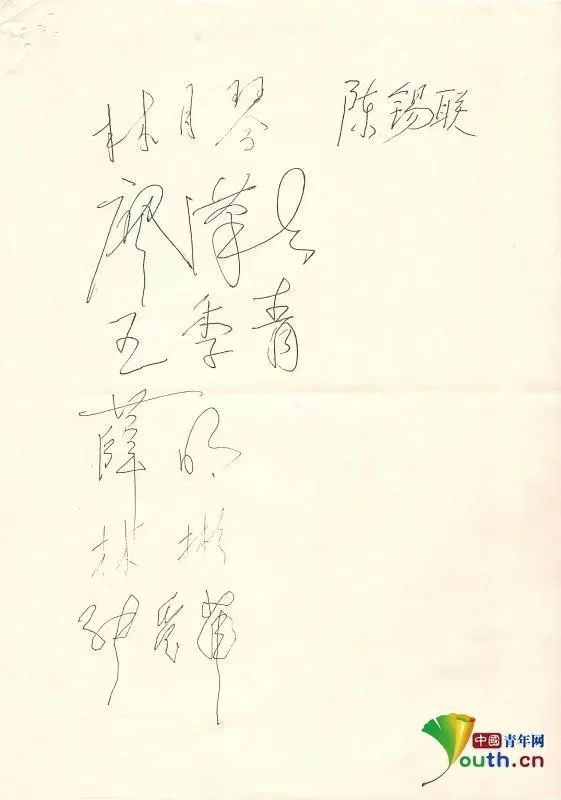 林月琴 陈锡联
廖汉生
王季青
薛明
林彬
中國 青年网
Youth.cn